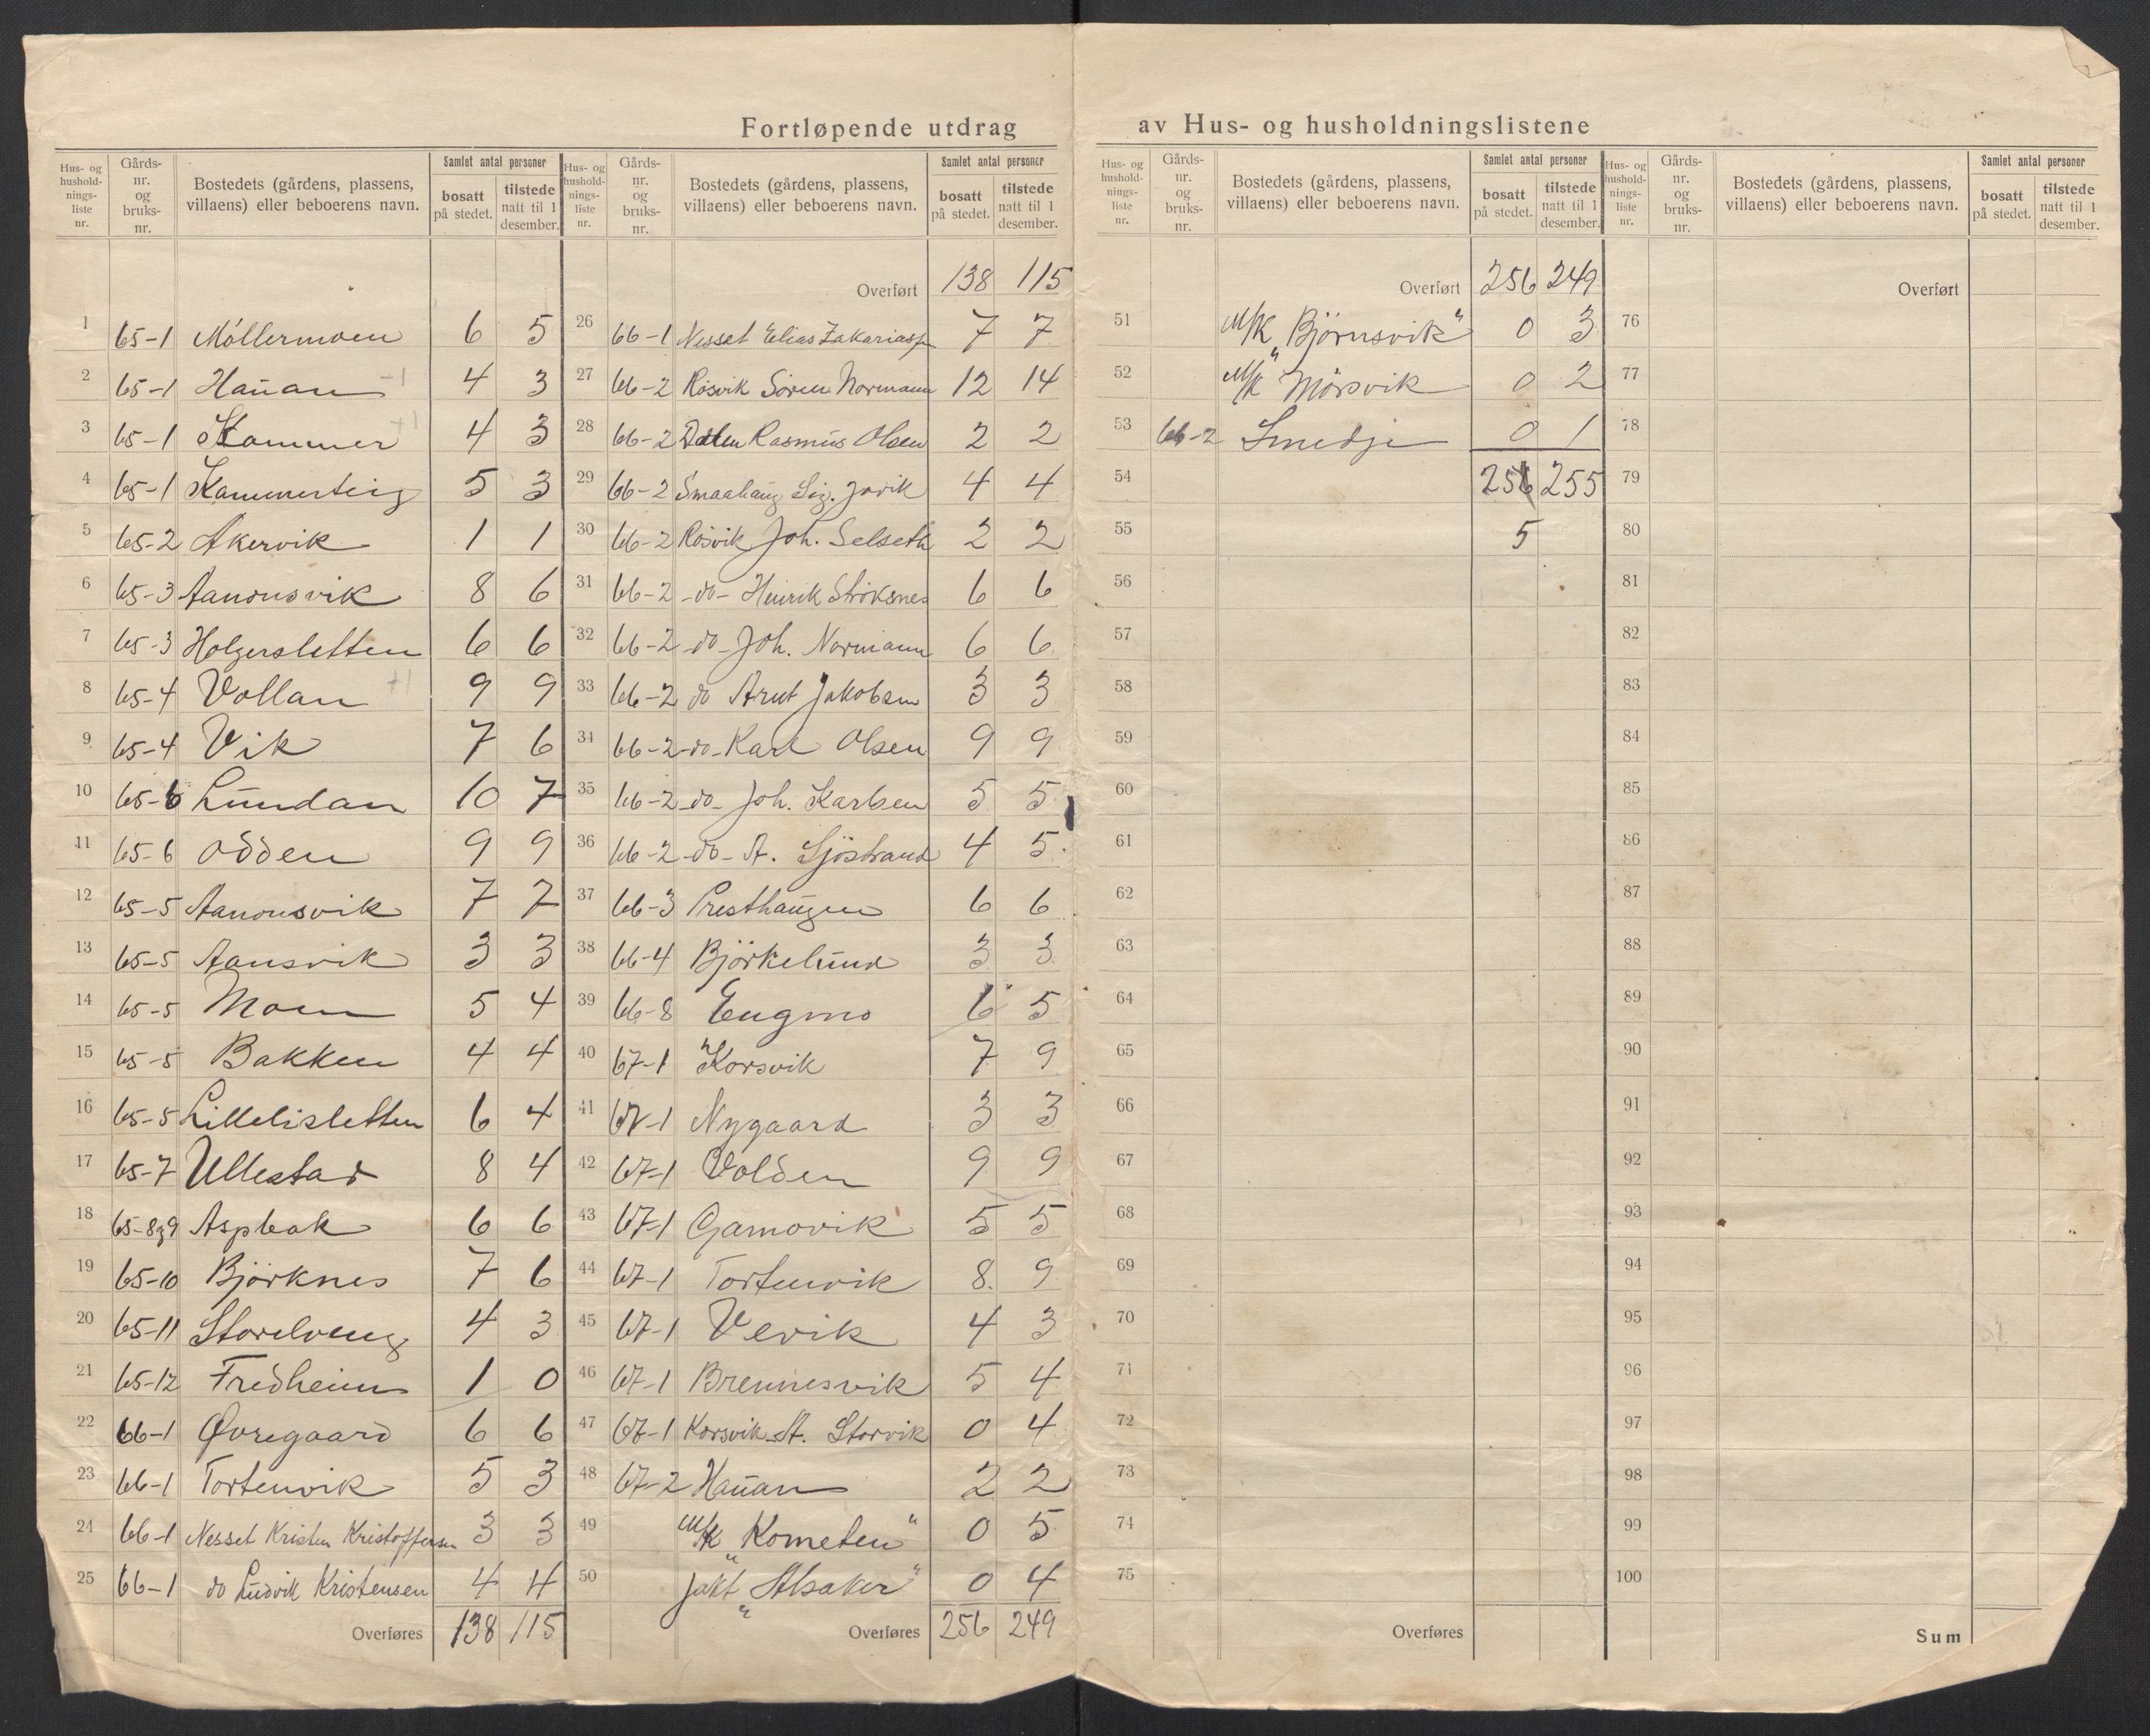 Fortløpende utdrag av Hus- og husholdningslistene
Hus- og hushold-nings-liste nr. Gårds-nr. og bruks-nr. Bostedets (gårdens, plassens, villaens) eller beboerens navn. Samlet antal personer bosatt på stedet. tilstede natt til 1 desember.
1 65-1 Möllermoen 6 5
2 65-1 Hauan -1 4 3
3 65-1 Kammer +1 4 3
4 65-1 Kammerteig 5 3
5 65-2 Akervik 1 1
6 65-3 Aanonsvik 8 6
7 65-3 Holgersletten 6 6
8 65-4 Vollan +1 9 9
9 65-4 Vik 7 6
10 65-6 Lundan 10 7
11 65-6 Odden 9 9
12 65-5 Aanonsvik 7 7
13 65-5 Aansvik 3 3
14 65-5 Moen 5 4
15 65-5 Bakken 4 4
16 65-5 Lillelisletten 6 4
17 65-7 Ullestad 8 4
18 65-8g9 Aspbak 6 6
19 65-10 Björknes 7 6
20 65-11 Storelveng 4 3
21 65-12 Fredheim 1 0
22 66-1 Øvregaard 6 6
23 66-1 Tortenvik 5 3
24 66-1 Nesset Kristen Kristoffersen 3 3
25 66-1 do Ludvik Kristensen 4 4
Overføres 138 115
Hus- og hushold-nings-liste nr. Gårds-nr. og bruks-nr. Bostedets (gårdens, plassens, villaens) eller beboerens navn. Samlet antal personer bosatt på stedet. tilstede natt til 1 desember.
Overført 138 115
26 66-1 Nesset Elias Zakarias 7 7
27 66-2 Rösvik Sören Normann 12 14
28 66-2 Rasmus Olsen 2 2
29 66-2 Smaahaug Sig. Javik 4 4
30 66-2 Rösvik Joh. Selseth 2 2
31 66-2 -do- Henrik Ströksnes 6 6
32 66-2 -do- Joh. Normann 6 6
33 66-2 do Arnt Jakobsen 3 3
34 66-2 -do- Karl Olsen 9 9
35 66-2 -do- Joh. Karlsen 5 5
36 66-2 -do- A. Sjöstrand 4 5
37 66-3 Presthaugen 6 6
38 66-4 Björkelund 3 3
39 66-8 Engmo 6 5
40 67-1 Korsvik 7 9
41 67-1 Nygaard 3 3
42 67-1 Volden 9 9
43 67-1 Gamovik 5 5
44 67-1 Tortenvik 8 9
45 67-1 Vevik 4 3
46 67-1 Brennesvik 5 4
47 67-1 Korsvik A. Storvik 0 4
48 67-2 Hauan 2 2
49 M/K "Kometen" 0 5
50 jakt "Alsaker" 0 4
Overføres 256 249
Hus- og hushold-nings-liste nr. Gårds-nr. og bruks-nr. Bostedets (gårdens, plassens, villaens) eller beboerens navn. Samlet antal personer bosatt på stedet. tilstede natt til 1 desember.
Overført 256 249
51 M/K "Björnsvik" 0 3
52 M/K Mörsvik 0 2
53 66-2 Smedje 0 1
54 256 255
55 5
56
57
58
59
60
61
62
63
64
65
66
67
68
69
70
71
72
73
74
75
Overføres
Hus- og hushold-nings-liste nr. Gårds-nr. og bruks-nr. Bostedets (gårdens, plassens, villaens) eller beboerens navn. Samlet antal personer bosatt på stedet. tilstede natt til 1 desember.
Overført
76
77
78
79
80
81
82
83
84
85
86
87
88
89
90
91
92
93
94
95
96
97
98
99
100
Sum